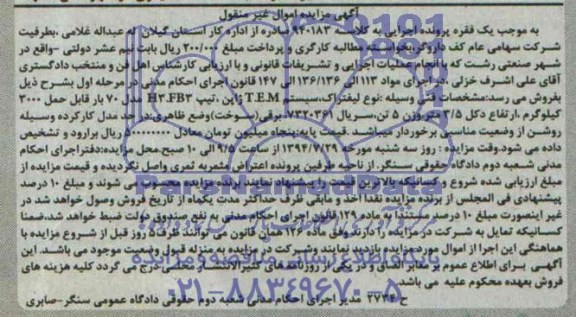 آگهی مزایده اموال غیر منقول
به موجب یک فقره پرونده اجرایی به کلاسه ۹۴۰۱۸۳ صادره از اداره کار استان گیلان له عبداله غلامی ،بطرفیت
شرکت سهامی عام کف داروگر،بخواسته مطالبه کارگری و پرداخت مبلغ ۲۰۰/۰۰۰ ریال بابت نیم عشر دولتی -واقع در
شهر صنعتی رشت که با انجام عملیات اجرایی و تشریفات قانونی و با ارزیابی کارشناس اهل فن و منتخب دادگستری
آقای علی اشرف خزلی ،در اجرای مواد ۱۱۳ الی ۱۳۶/۱۳۶ الی ۱۴۷ قانون اجرای احکام مدنی در مرحله اول بشرح ذیل
بفروش می رسد:مشخصات فنی وسیله :نوع لیفتراک،سیستم T.E.M ژاپن ،تیپ H۳.FB۳ مدل ۷۰ بار قابل حمل ۳۰۰۰
کیلوگرم ،ارتفاع دکل ۳/۵ متر وزن ۵ تن،سریال ۷۳۲۰۳۶۱ ،برقی(سوخت)وضع ظاهری:در حد مدل کارکرده وسیله
روشن از وضعیت مناسبی برخوردار میباشد .قیمت پایه:پنجاه میلیون تومان معادل ۵۰۰۰۰۰۰۰۰ ریال براورد و تشخیص
داده می شود.وقت مزایده : روز سه شنبه مورخه ۱۳۹۴/۷/۲۹ از ساعت ۹/۵ الی ۱۰ صبح محل مزایده:دفتراجرای احکام
مدنی شعبه دوم دادگاه حقوقی سنگر. از ناحیه طرفین پرونده اعتراض مثمربه ثمری واصل نگردیده و قیمت مزایده از
مبلغ ارزیابی شده شروع و کسانیکه بالاترین قیمت را پیشنهاد نمایند برنده مزایده محسوب می شوند و مبلغ ۱۰ درصد
پیشنهادی فی المجلس از برنده مزایده نقدا اخذ و مابقی ظرف حداکثر مدت یکماه از تاریخ فروش وصول خواهد شد در
غیر اینصورت مبلغ ۱۰ درصد مستندا به ماده ۱۲۹ قانون اجرای احکام مدنی به نفع صندوق دولت ضبط خواهد شد،ضمنا
کسانیکه تمایل به شرکت در مزایده را دارند وفق ماده ۱۲۶ همان قانون می توانند ظرف۵ روز قبل از شروع مزایده با
هماهنگی این اجرا از اموال مورد مزایده بازدید نمایند وشرکت در مزایده به منزله قبول وضعیت موجود می باشد. این
آگهی برای اطلاع عموم بر معابر الصاق و در یکی از روزنامه های کثیرالانتشار محلی درج می گردد کلیه هزینه های
فروش بعهده محکوم علیه می باشد.
ح ۲۷۳۴ مدیر اجرای احکام مدنی شعبه دوم حقوقی دادگاه عمومی سنگر-صابری
پایگاه اطلاع رسانی مناقصه و مزایده
۰۲۱-۸۸۳۴۹۶۷۰-۵